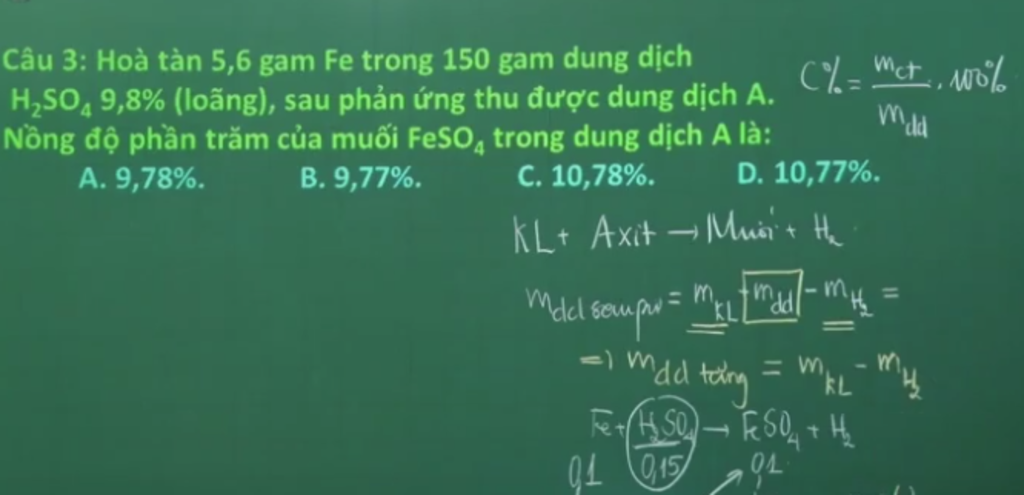 Câu 3: Hoà tàn 5,6 gam Fe trong 150 gam dung dịch
H₂SO₄ 9,8% (loãng), sau phản ứng thu được dung dịch A.
Nồng độ phần trăm của muối FeSO₄ trong dung dịch A là:
A. 9,78%. B. 9,77%. C. 10,78%. D. 10,77%.
C% = mct / mdd . 100%
KL + Axit → Muối + H₂
mdd sau pư = mKL + mdd - mH₂ =
=> mdd tăng = mKL - mH₂
Fe + H₂SO₄ → FeSO₄ + H₂
0,1 0,15 0,1